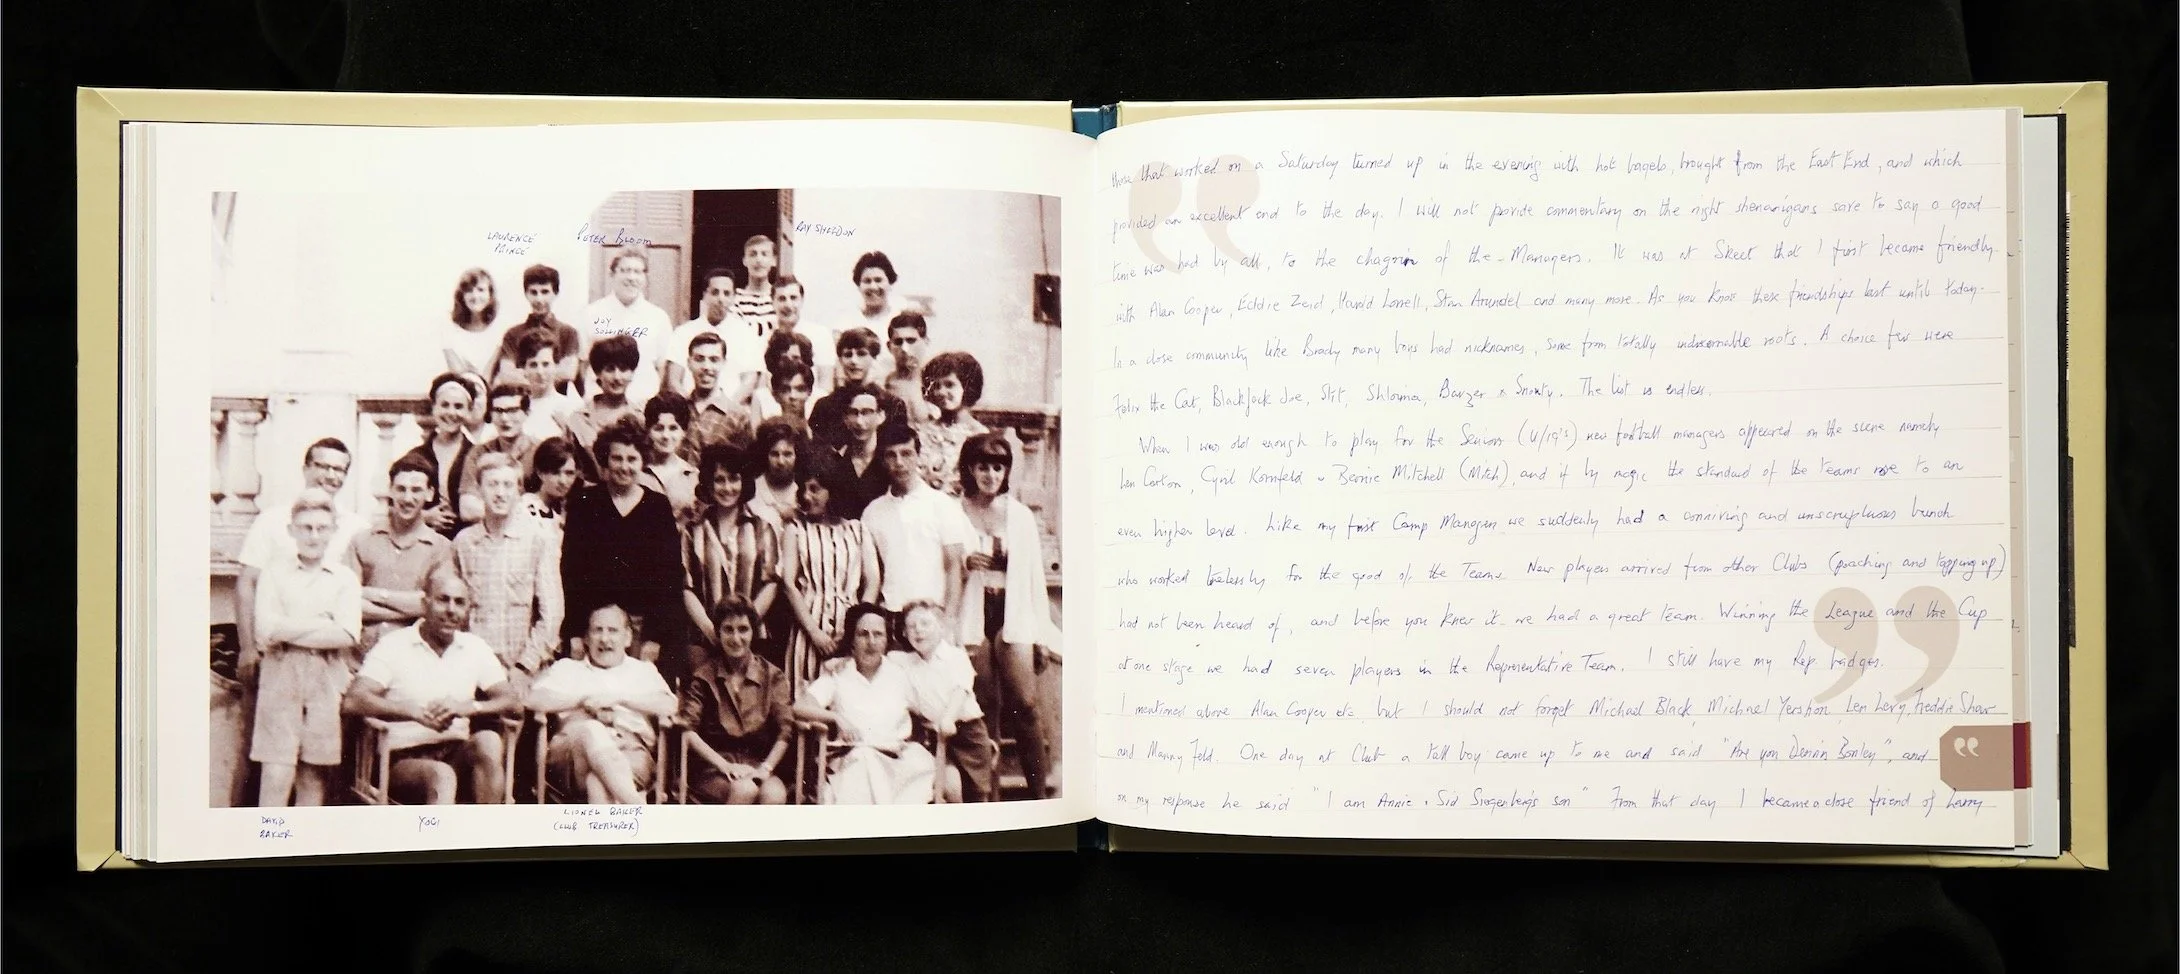 LAURENCE
PRINCE
PETER BLOOM
RAY SHELDON
JOY
SOLLINGER
DAVID
BAKER
YOGI
LIONEL BAKER
(CLUB TREASURER)
those that worked on a Saturday turned up in the evening with hot bagels, brought from the East End, and which
provided an excellent end to the day. I will not provide commentary on the night shenanigans save to say a good
time was had by all, to the chagrin of the Managers. It was at Skeet that I first became friendly
with Alan Cooper, Eddie Zeid, Harold Lovell, Stan Arundel and many more. As you know these friendships last until today.
In a close community like Brady many boys had nicknames, some from totally indiscernable roots. A choice few were
Felix the Cat, Blackjack Joe, Stit, Shloima, Barzer & Snowty. The list is endless.
When I was old enough to play for the Seniors (U/19's) new football managers appeared on the scene namely
Len Corton, Cyril Kornfeld & Bernie Mitchell (Mitch), and if by magic the standard of the teams rose to an
even higher level. Like my first Camp Managers we suddenly had a conniving and unscrupulous bunch
who worked tirelessly for the good of the Teams. New players arrived from other Clubs (poaching and tapping up)
had not been heard of, and before you knew it we had a great team. Winning the League and the Cup
at one stage we had seven players in the Representative Team. I still have my Rep. badges.
I mentioned above Alan Cooper etc but I should not forget Michael Black, Michael Yershon, Len Levy, Freddie Shaw
and Manny Feld. One day at Club a tall boy came up to me and said "Are you Dennin Bonley", and
on my response he said "I am Annie & Sid Srogenberg's son" From that day I became a close friend of Larry